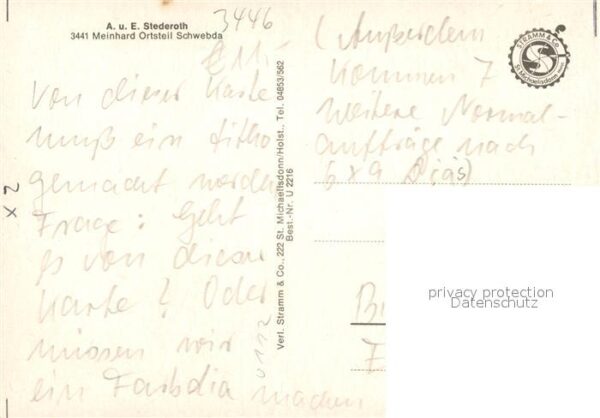 A. u. E. Stederoth
3441 Meinhard Ortsteil Schwebda
3446
Von dieser Karte
muß ein Litho
gemacht werden
Frage: Geht
es von dieser
Karte? Oder
müssen wir
ein Farbdia machen
2 x
Verl. Stramm & Co., 222 St. Michaelisdonn/Holst., Tel. 04853/562
Best.-Nr. U 2216
0112
(Außerdem
kommen 7
weitere Normal-
aufträge nach
6x9 Dias)
STRAMM & Co.
St. Michaelisdonn
privacy protection
Datenschutz